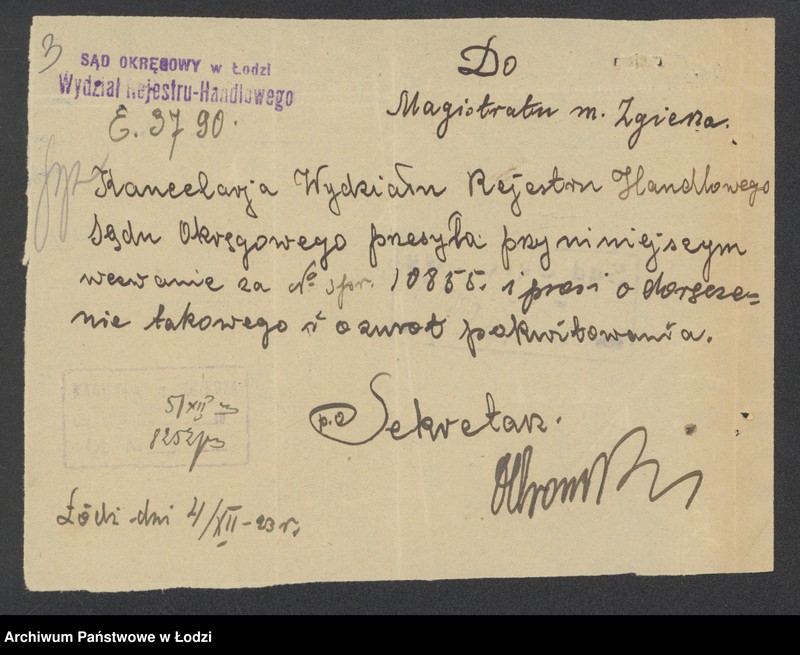 3
SĄD OKRĘGOWY w Łodzi
Wydział Rejestru-Handlowego
E. 3790.
Do
Magistratu m. Zgierza.
Kancelarja Wydziału Rejestru Handlowego
Sądu Okręgowego przesyła przy niniejszym
wezwanie za No spr. 10855. i prosi o doręcze=
nie takowego i o zwrot pokwitowania.
5/XII
p.o Sekretarz.
Łódź dni 4/XII-23 r.
Archiwum Państwowe w Łodzi